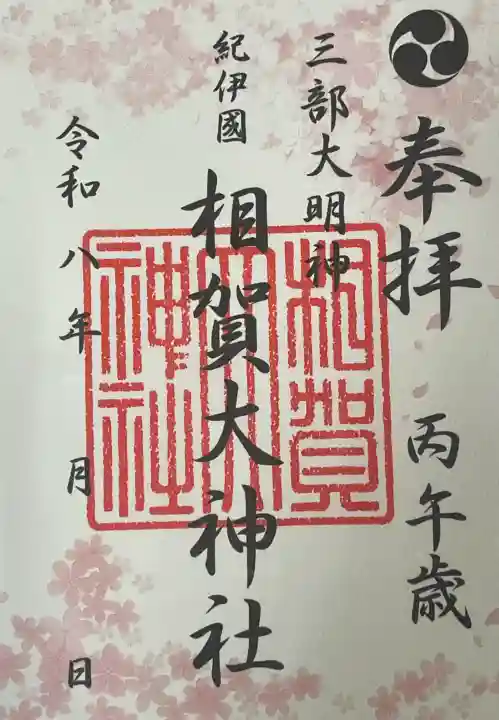 奉拝 丙午歳
三部大明神
紀伊國
相賀大神社
令和八年 月 日
相賀
大
神社